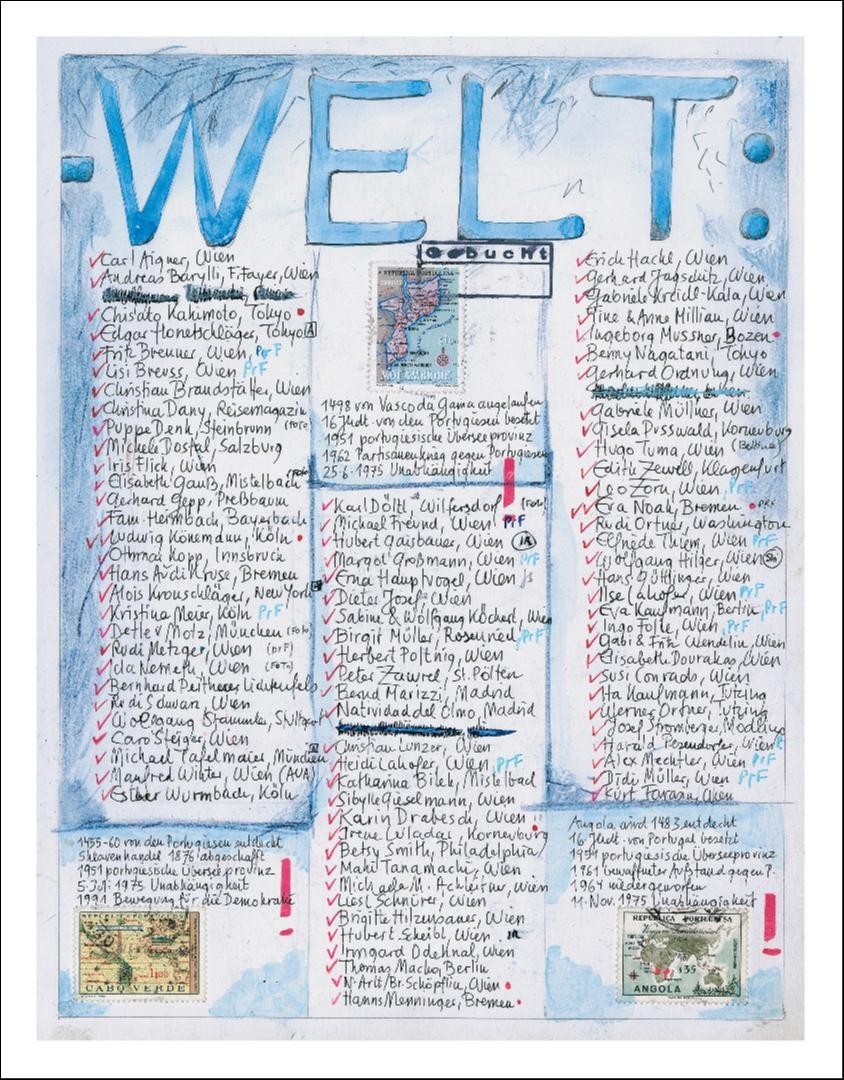 WELT:
Carl Aigner, Wien
Andreas Barylli, F. Fayer, Wien
Chisato Kakimoto, Tokyo
Edgar Honetschläger, Tokyo A
Fritz Breuner, Wien, PrF
Lisi Breuss, Wien PrF
Christian Brandstätter, Wien
Christina Dany, Reisemagazin
Puppe Denk, Steinbrunn (Foto)
Michele Dostal, Salzburg
Iris Flick, Wien
Elisabeth Gauß, Mistelbach
Gerhard Gepp, Preßbaum
Fam. Heimbach, Bayerbach
Ludwig Könemann, Köln
Othmar Kopp, Innsbruck
Hans Avdi Kruse, Bremen
Alois Kronschläger, New York
Kristina Meier, Köln PrF
Detlev Motz, München (Foto)
Rudi Metzger, Wien (PrF)
Ida Nemeth, Wien (Foto)
Bernhard Leitherer Lichtenfels
Redi Schwarz, Wien
Wolfgang Stammler, Stuttgart
Caro Steiger, Wien
Michael Tafelmaier, München
Manfred Winter, Wien (AVA)
Esther Wurmbach, Köln
1455-60 von den Portugiesen entdeckt
Sklavenhandel 1876 abgeschafft
1951 portugiesische Überseeprovinz
5.Jul. 1975 Unabhängigkeit
1991 Bewegung für die Demokratie
CABO VERDE
Gebucht
REPUBLICA PORTUGUESA
MOÇAMBIQUE
1498 von Vasco da Gama angelaufen
16. Jhdt. von den Portugiesen besetzt
1951 portugiesische Überseeprovinz
1962 Partisanenkrieg gegen Portugiesen
25.6.1975 Unabhängigkeit
Karl Döltl, Wilfersdorf (Foto)
Michael Freund, Wien PrF
Hubert Gaisbauer, Wien
Margot Großmann, Wien PrF
Erna Hauptvogel, Wien
Dieter Josef, Wien
Sabine & Wolfgang Köchert, Wien
Birgit Müller, Rosenried, PrF
Herbert Polthig, Wien
Peter Zawrel, St. Pölten
Bernd Marizzi, Madrid
Natividad del Olmo, Madrid
Christian Lunzer, Wien
Heidi Lahofer, Wien, PrF
Katharina Bilek, Mistelbach
Sibylle Gieselmann, Wien
Karin Drabesch, Wien
Irene Wladar, Korneuburg
Betsy Smith, Philadelphia
Maki Tanamachi, Wien
Michaela M. Achleitner, Wien
Liesl Schnürer, Wien
Brigitte Hilzensauer, Wien
Hubert Scheibl, Wien
Irmgard Odehnal, Wien
Thomas Macho, Berlin
N. Arlt/Br. Schöpflin, Wien
Hanns Menninger, Bremen
Erich Hackl, Wien
Gerhard Jagschitz, Wien
Gabriele Kreidl-Kala, Wien
Tine & Anne Millian, Wien
Ingeborg Mussner, Bozen
Benny Nagatani, Tokyo
Gerhard Ordnung, Wien
Gabriele Müllner, Wien
Gisela Pusswald, Korneuburg
Hugo Tuma, Wien (Bettina)
Edith Zewell, Klagenfurt
Leo Zorn, Wien, PrF
Eva Noak, Bremen PRF
Rudi Ortner, Washington
Elfriede Thiem, Wien PrF
Wolfgang Hilger, Wien
Hans Güttinger, Wien
Ilse Lahofer, Wien PrF
Eva Kaufmann, Berlin, PrF
Ingo Folie, Wien, PrF
Gabi & Fritz Wendelin, Wien
Elisabeth Dourakas, Wien
Susi Conrads, Wien
Ha Kaufmann, Tutzing
Werner Ortner, Tutzing
Josef Stromberger, Mödling
Harald Pesendorfer, Wien
Alex Mechtler, Wien PrF
Didi Müller, Wien PrF
Kurt Farasin, Wien
Angola wird 1483 entdeckt
16. Jhdt. von Portugal besetzt
1951 portugiesische Überseeprovinz
1961 bewaffneter Aufstand gegen P.
1964 niedergeworfen
11. Nov. 1975 Unabhängigkeit
REPÚBLICA PORTUGUESA
$35
ANGOLA